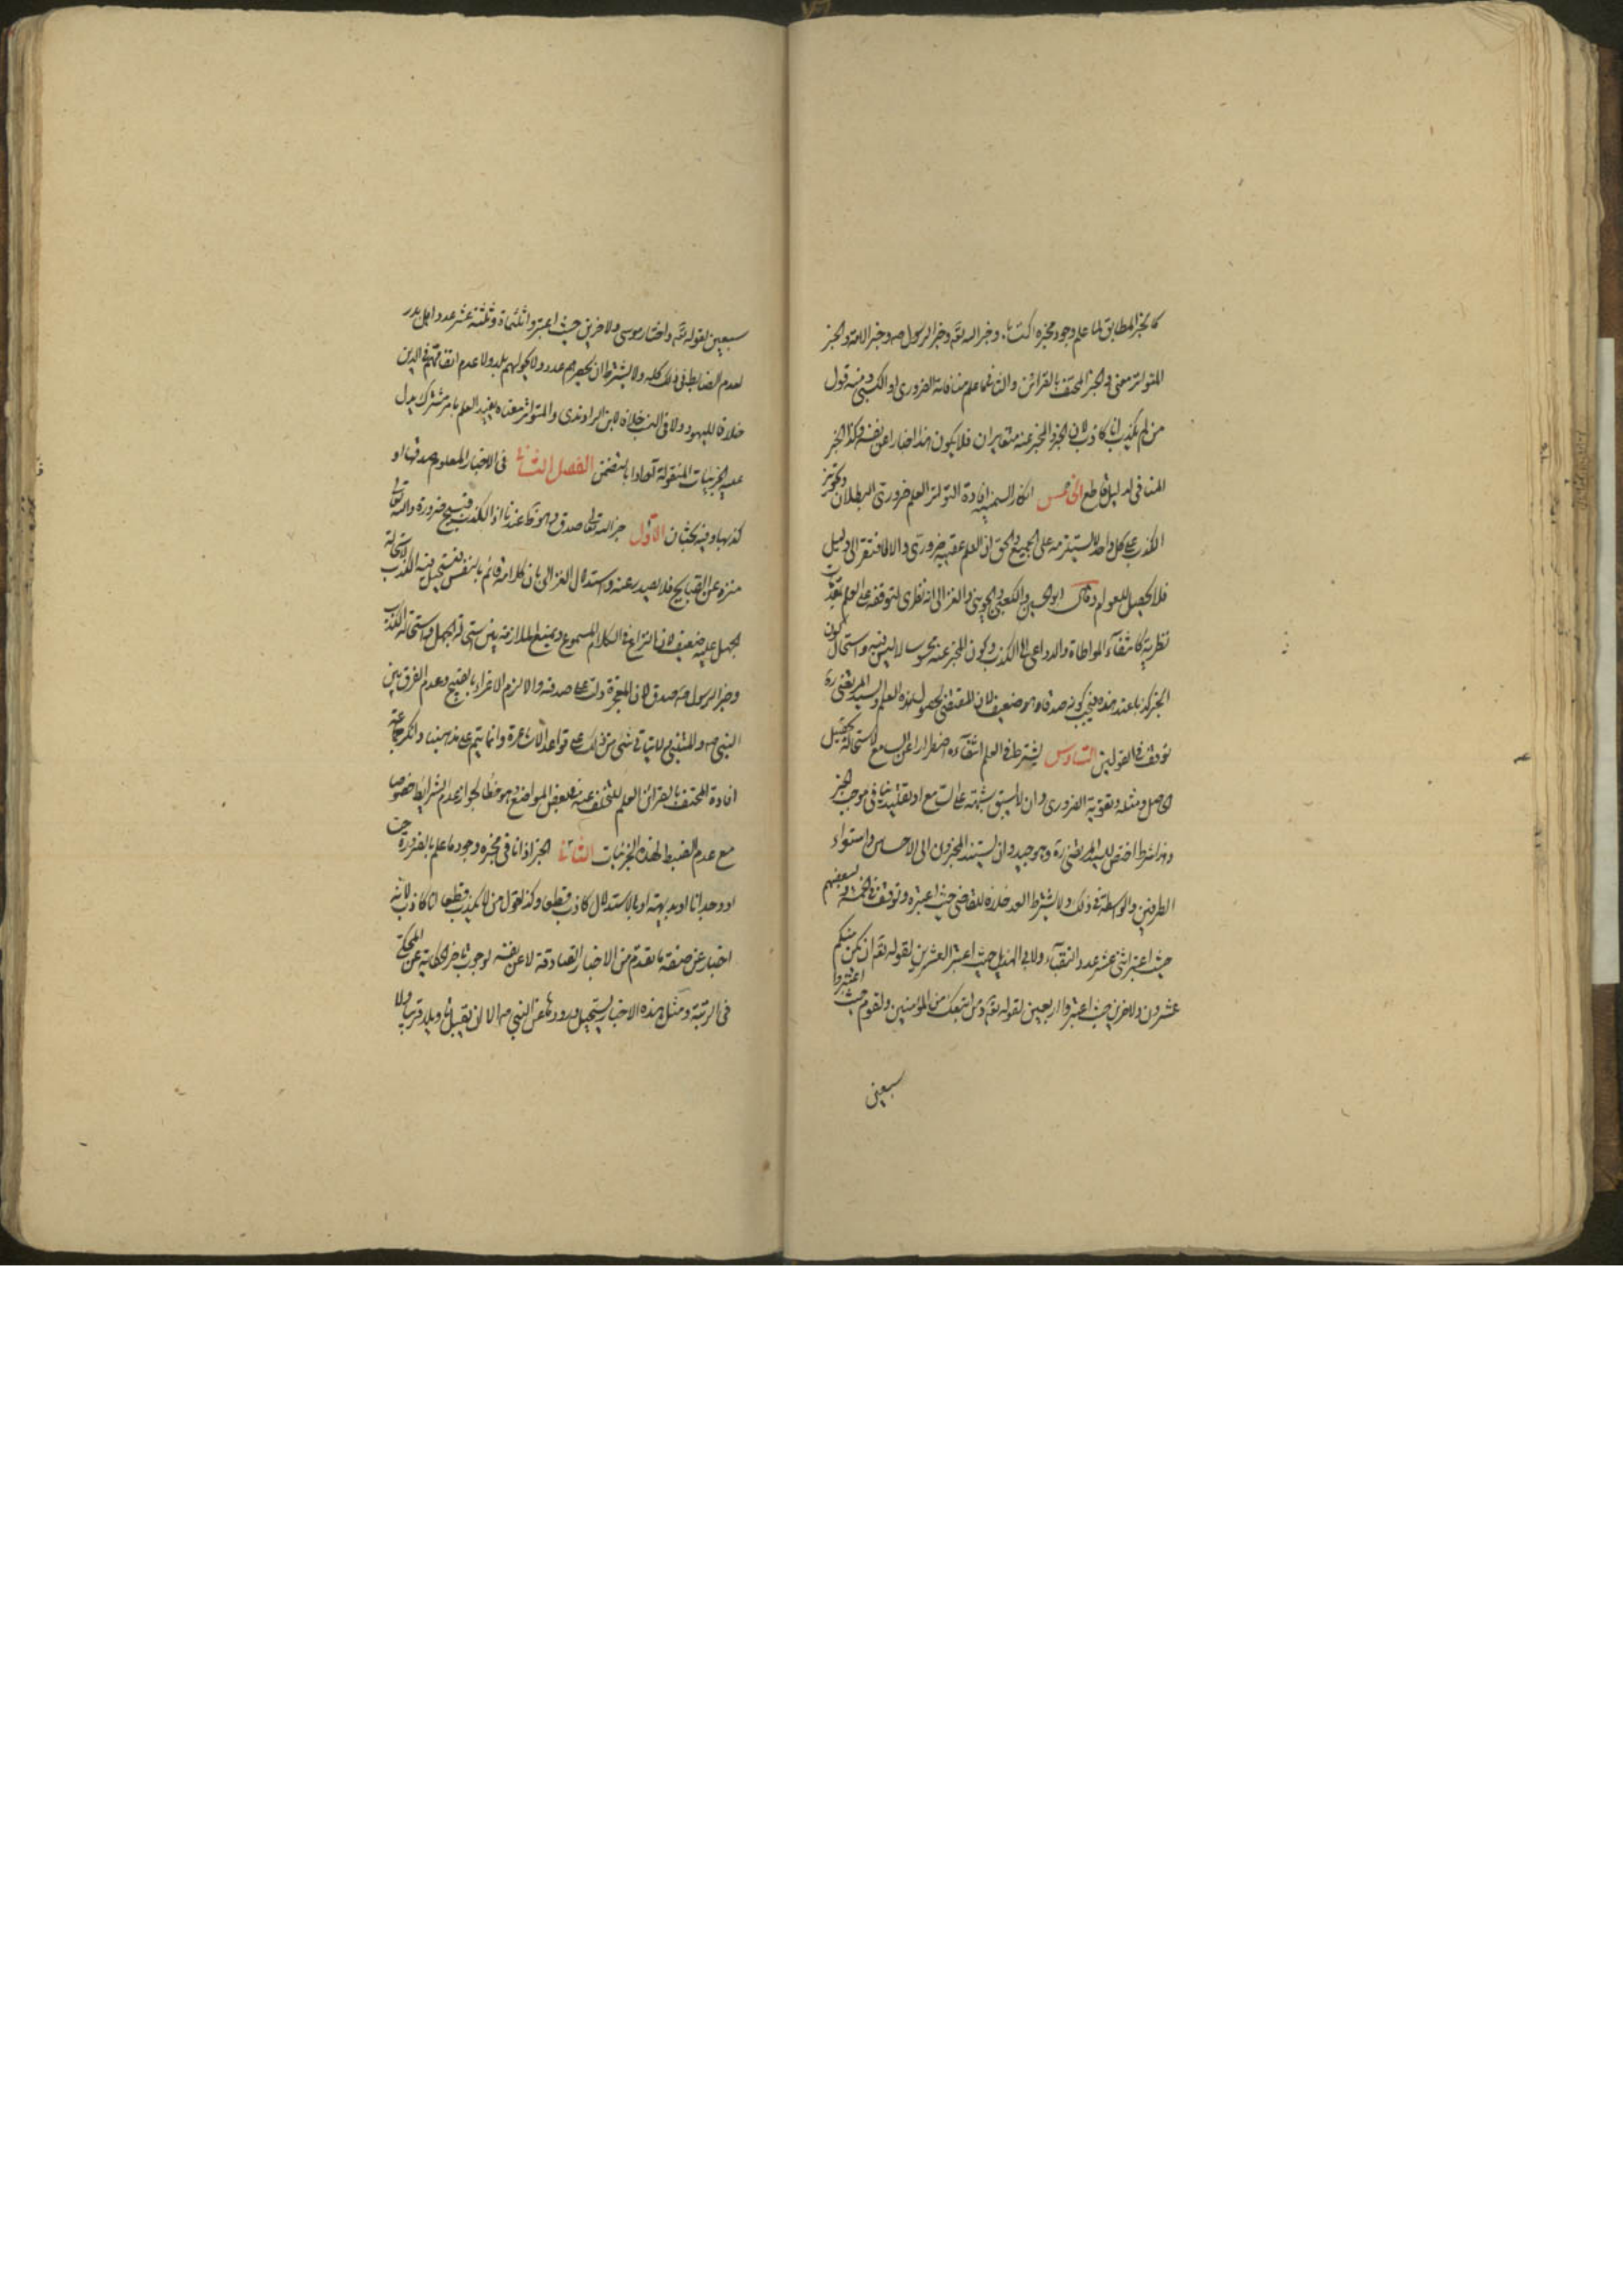 كالخبر المطابق لما علم وجود مخبره اكتسابا وخبر الله تعه وخبر الرسول صه وخبر الامة والخبر
المتواتر معنى والخبر المحتف بالقرائن والثانى ما علم منافاته الضرورى او الكسبى ومنه قول
من لم يكذب انا كاذب لان الخبر والمخبر عنه متغايران فلا يكون هذا اخبارا عن نفسه وكذا الخبر
المنافى لدليل قاطع الخامس انكار السمنية افادة التواتر العلم ضرورى البطلان وتجويز
الكذب على كل واحد لا يستلزمه على الجميع والحق ان العلم عقيبه ضرورى والا لافتقر الى دليل
فلا يحصل للعوام وقال ابو الحسين والكعبى والجوينى والغزالى انه نظرى لتوقفه على العلم بمقدمات
نظرية كانتفاء المواطاة والدواعى الى الكذب وكون المخبر عنه محسوسا لا لبس فيه واستحالة كون
الخبر كذبا عند هذه فيجب كونه صدقا وهو ضعيف لان المقتضى لحصول هذه العلم والسيد المرتضى ره
توقف فى القولين السادس يشترط فى العلم انتفاؤه اضطرارا عن السامع لاستحالة تحصيل
الحاصل ومثله وتقوية الضرورى وان لا يسبق شبهة على السامع او تقليد ينافى موجب الخبر
وهذا شرط اختص للسيد المرتضى ره وهو جيد وان يستند المخبرون الى الاحساس واستواء
الطرفين والواسطة فى ذلك ولا يشترط العدد خلافا للقاضى حيث اعتبره وتوقف فى الخمسة ولبعضهم
حيث اعتبر اثنى عشر عدد النقباء ولابى الهذيل حيث اعتبر العشرين لقوله تعه ان يكن منكم
عشرون ولاخرين حيث اعتبروا اربعين لقوله تعه ومن اتبعك من المؤمنين ولقوم حيث اعتبروا
سبعين
سبعين لقوله تعه واختار موسى ولاخرين حيث اعتبروا ثلثماة وثلثة عشر عدد اهل بدر
لعدم الضابط فى ذلك كله ولا يشترط ان لا يحصرهم عدد ولا يحويهم بلد ولا عدم اتفاقهم فى الدين
خلافا لليهود ولا فى النسب خلافا لابن الراوندى والمتواتر معناه يفيد العلم بامر مشترك يدل
عليه الجزئيات المنقولة آحادا بالتضمن الفصل الثانى فى الاخبار المعلوم صدقها او
كذبها وفيه بحثان الاول خبر الله تعالى صدق وهو ظ عندنا اذ الكذب قبيح ضرورة والله تعالى
منزه عن القبايح فلا يصدر عنه واستدلال الغزالى بان كلامه قائم بالنفس فيستحيل فيه الكذب لاستحالة
الجهل عليه ضعيف لان النزاع فى الكلام المسموع ويمنع الملازمة بين استحالة الجهل واستحالة الكذب
وخبر الرسول صه صدق لان المعجزة دلت على صدقه والا لزم الاغراء بالقبيح وعدم الفرق بين
النبى صه والمتنبى ولا يتاتى شئ من ذلك على قواعد الاشاعرة وانما يتم على مذهبنا وانكر جماعة
افادة المحتف بالقرائن العلم للتخلف عنه فى بعض المواضع وهو خطأ لجواز عدم الشرائط خصوصا
مع عدم الضبط لهذه الجزئيات الثانى الخبر اذا نافى مخبره وجود ما علم بالضرورة حسا
او وجدانا او بديهة او بالاستدلال كاذب قطعا وكذا قول من لا يكذب قط انا كاذب لانه
اخبار عن صفته ما تقدم من الاخبار الصادقة لا عن نفسه لوجوب تاخر الحكاية عن المحكى
فى الرتبة ومثل هذه الاخبار يستحيل ورودها عن النبى صه الا ان يقبل تاويلا قريبا ولا